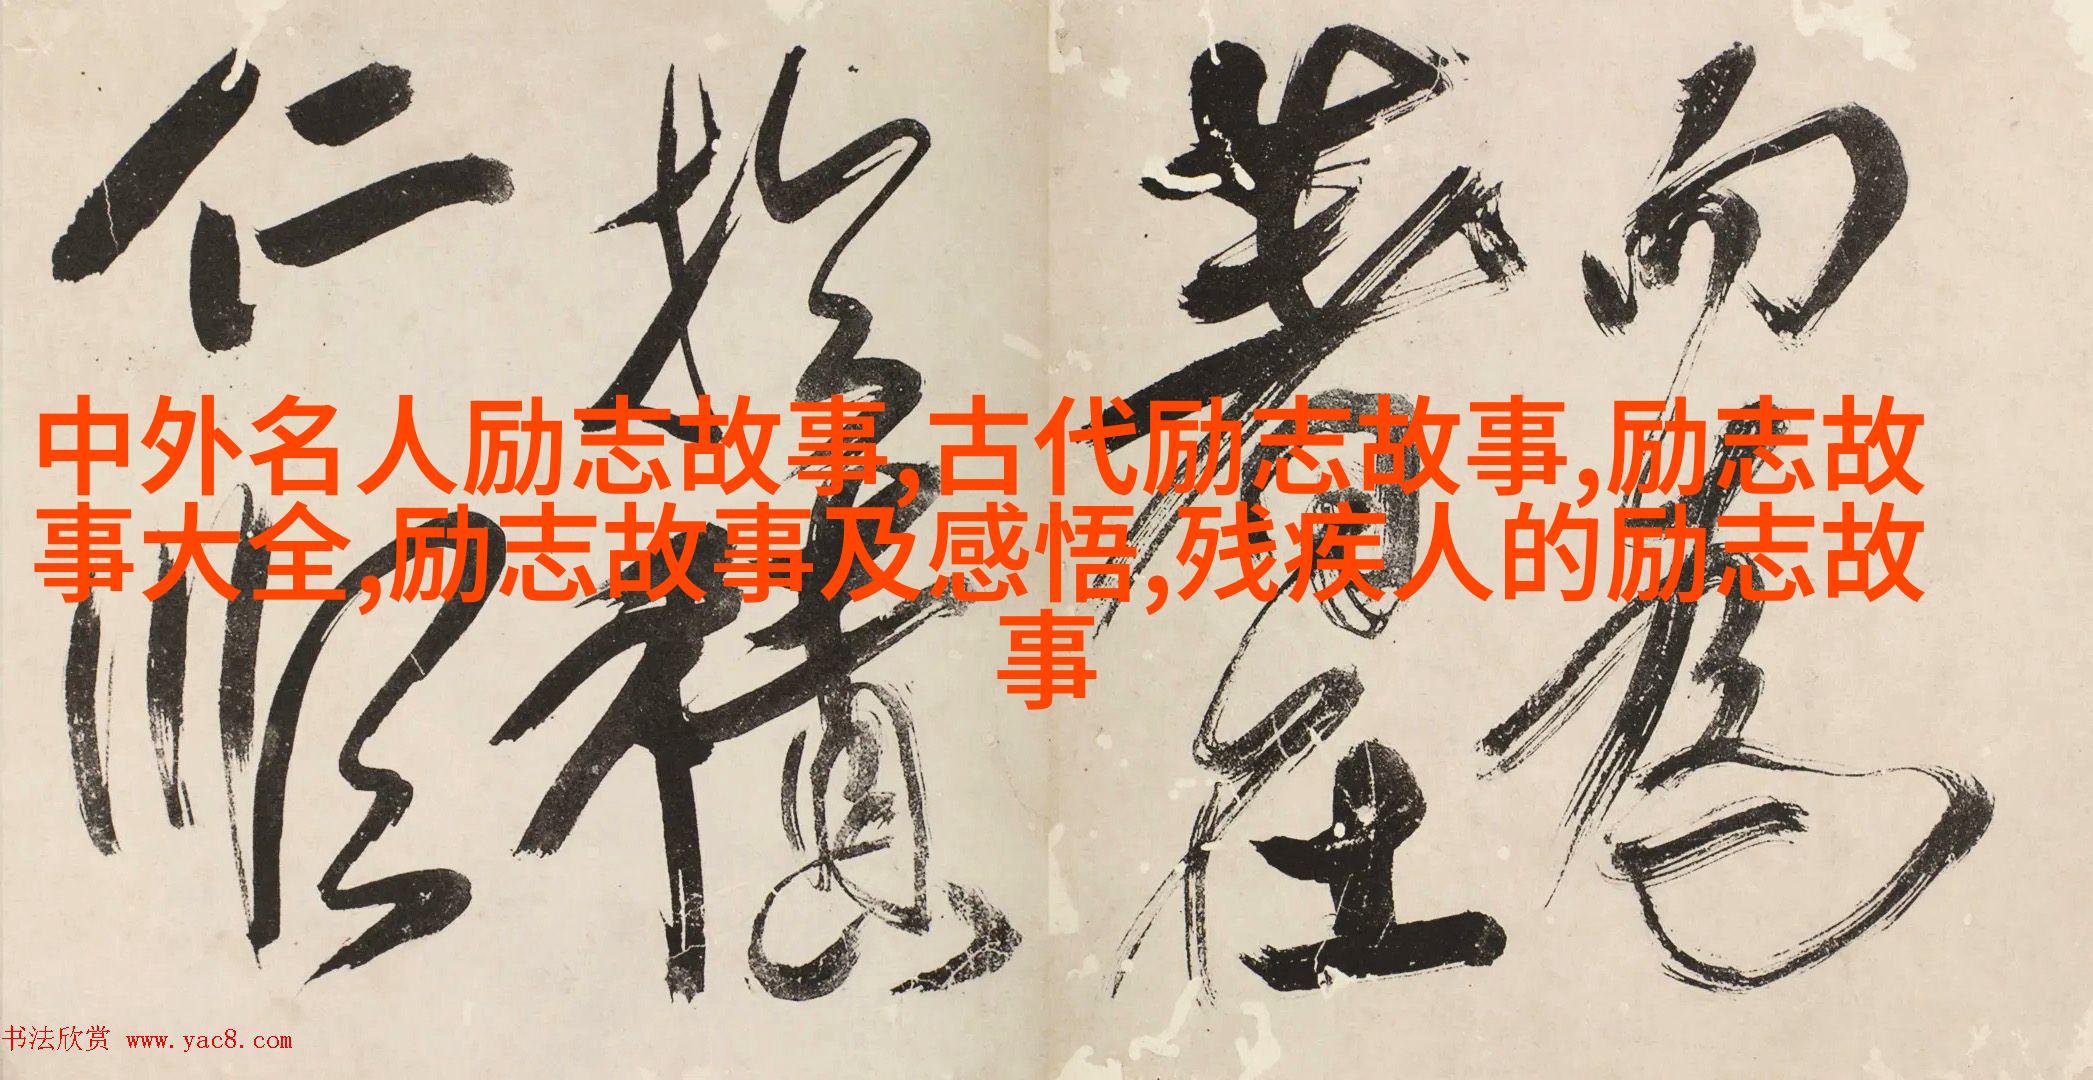 而為
於積
仁順
中外名人励志故事,古代励志故事,励志故
事大全,励志故事及感悟,残疾人的励志故
事
书法欣赏 www.yac8.com